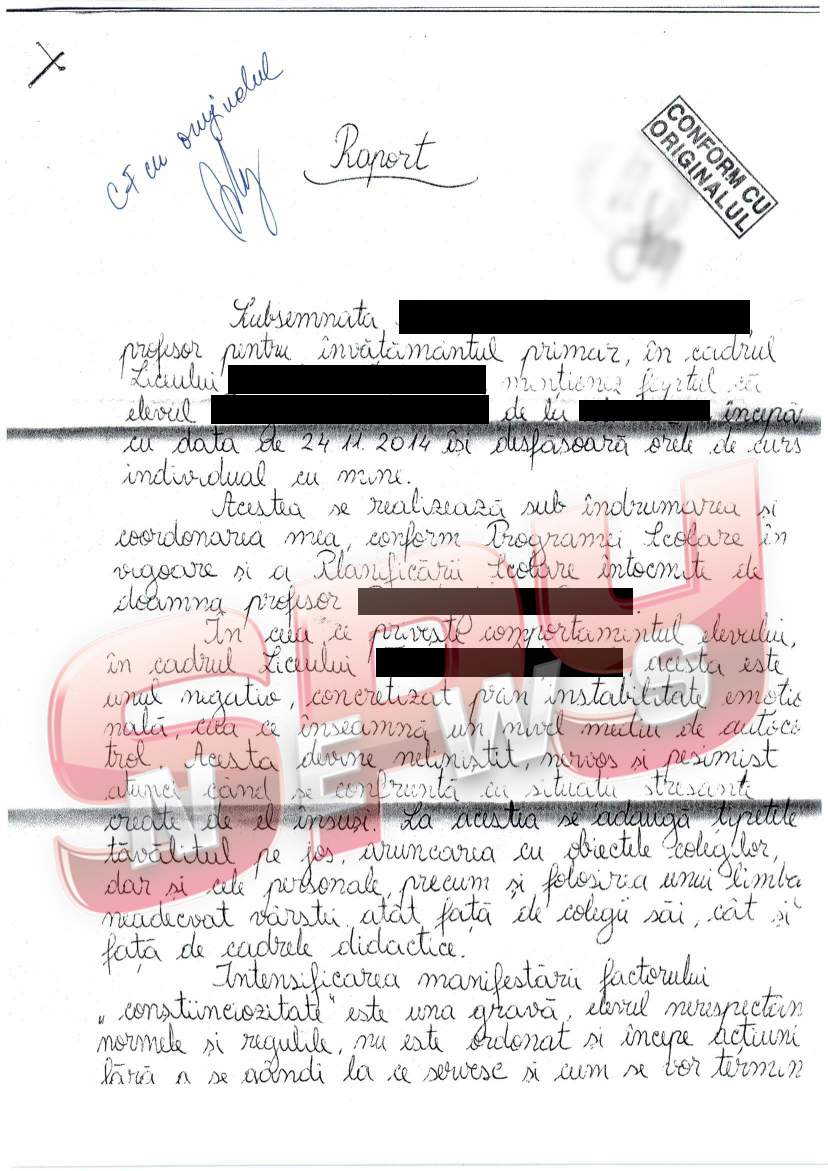 C.F cu originalul
Raport
CONFORM CU
ORIGINALUL
Subsemnata
profesor pentru învățământul primar, în cadrul
Liceului menționez faptul că
elevul de la începâ
cu data de 24 11. 2014 își desfășoară orele de curs
individual cu mine.
Acestea se realizează sub îndrumarea și
coordonarea mea, conform Programei Școlare în
vigoare și a Planificării Școlare întocmite de
doamna profesor
În ceea ce privește comportamentul elevului,
în cadrul Liceului , acesta este
unul negativ, concretizat prin instabilitate emoțio
nală, ceea ce înseamnă un nivel mediu de autoco
trol. Acesta devine neliniștit, nervos și pesimist
atunci când se confruntă cu situații stresante
create de el însuși. La acestea se adaugă țipetele
tăvălitul pe jos, aruncarea cu obiectele colegilor,
dar și cele personale, precum și folosirea unui limba
neadecvat vârstei, atât față de colegii săi, cât și
față de cadrele didactice.
Intensificarea manifestării factorului
„constiinciozitate" este una gravă, elevul nerespectân
normele și regulile, nu este ordonat și începe acțiuni
fără a se gândi la ce servesc și cum se vor termin
SPY
NEWS